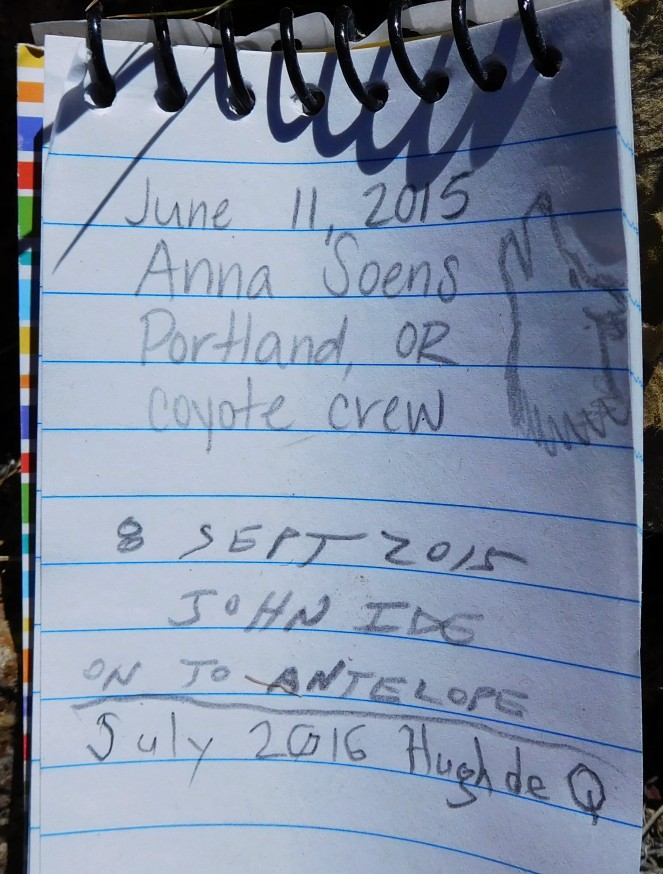 June 11, 2015
Anna Soens
Portland, OR
coyote crew
8 SEPT 2015
JOHN IDE
ON TO ANTELOPE
July 2016 Hugh de Q